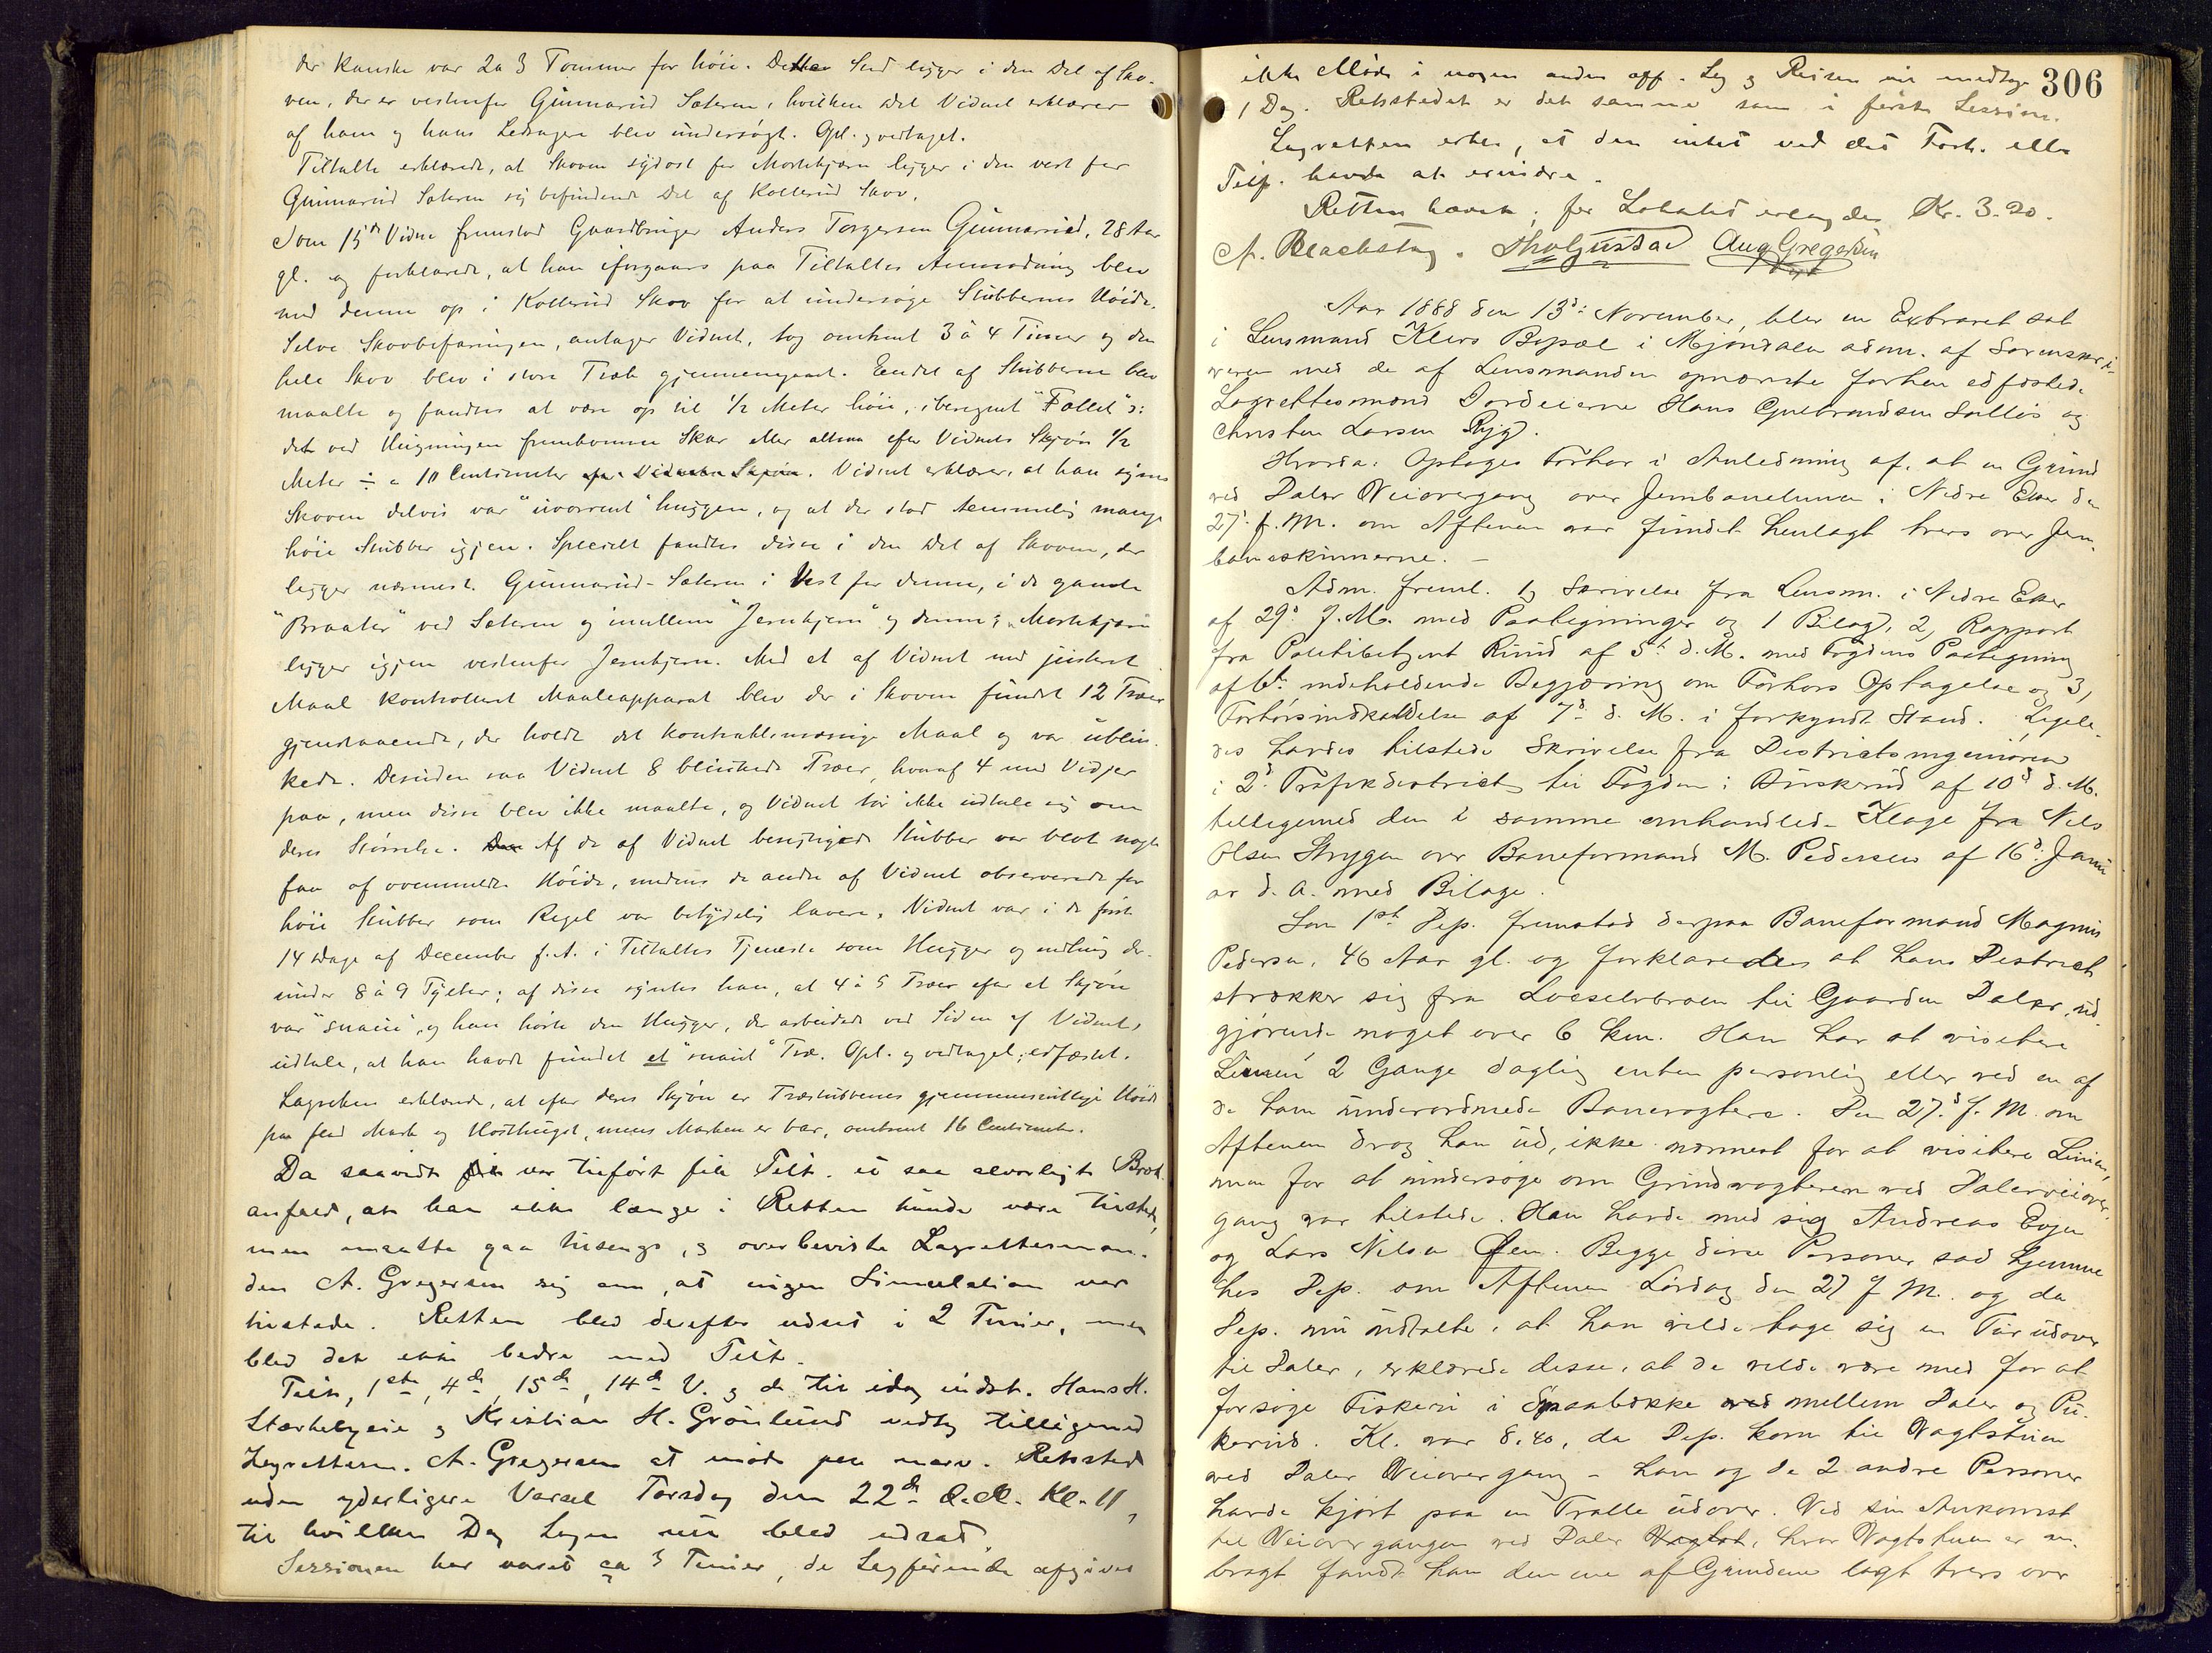 der kanske var 2 a 3 Tommer for høie. Dette Sted ligger i den Del af Sko-
ven, der er vestenfor Gunnarud Sæteren, hvilken Del Vidnet erklærer
af ham og hans Ledsagere blev undersøgt. Opl. og vedtaget.
Tiltalte erklærede, at Skoven sydost for Mortekjern ligger i den vest for
Gunnarud Sæteren sig befindende Del af Kollerud Skov.
Som 15de Vidne fremstod Gaardbruger Anders Torgersen Gunnarud, 28 Aar
gl. og forklarede, at han iforgaars paa Tiltaltes Anmodning blev
med denne op i Kollerud Skov for at undersøge Stubbernes Høide.
Selve Skovbefaringen, antager Vidnet, tog omtrent 3 à 4 Timer og den
hele Skov blev i store Træk gjennemgaaet. Endel af Stubberne blev
maalte og fandtes at være op til 1/2 Meter høie, iberegnet "Fallet" ɔ:
det ved Hugningen fremkomne Skar eller altsaa efter Vidnets Skjøn 1/2
Meter ÷ a 10 Centimeter efter Vidnets Skjøn. Vidnet erklærer, at han synes
Skoven delvis var "uvorrent" huggen, og at der stod temmelig mange
høie Stubber igjen. Specielt fandtes disse i den Del af Skoven, der
ligger nærmest Gunnarud-Sæteren i Vest for denne, i de gamle
"Braater" ved Sæteren og imellem "Jernkjern" og denne; Mortekjern
ligger igjen vestenfor Jernkjern. Med et af Vidnet med justeret
Maal kontrolleret Maaleapparat blev der i Skoven fundet 12 Træer
gjenstaaende, der holdt det kontraktsmæssige Maal og var ublin-
kede. Desuden saa Vidnet 8 blinkede Træer, hvoraf 4 med Vidjer
paa, men disse blev ikke maalte, og Vidnet tør ikke udtale sig om
deres Størrelse. Den Af de af Vidnet besigtigede Stubber var blot nogle
faa af ovennævnte Høide, medens de andre af Vidnet observerede for
høie Stubber som Regel var betydelig lavere. Vidnet var i de første
14 Dage af December f. A. i Tiltaltes Tjeneste som Hugger og nedhug der-
under 8 à 9 Tylter; af disse syntes han, at 4 à 5 Træer efter et Skjøn
var "snaue", og han hørte den Hugger, der arbeidede ved Siden af Vidnet,
udtale, at han havde fundet et "snaut" Træ. Opl. og vedtaget; edfæstet.
Lagretten erklærede, at efter deres Skjøn er Træstubbenes gjennemsnitlige Høide
paa flad Mark og Høsthugst, mens Marken er bar, omtrent 16 Centimeter.
Da saavidt var tilført fik Tilt. et saa alvorligt Bræk
anfald, at han ikke længe i Retten kunde være tilstede,
men maatte gaa tilsengs, og overbeviste Lagrettesman-
den A. Gregersen sig om, at ingen Simulation var
tilstede. Retten blev derefter udsat i 2 Timer, men
blev det ikke bedre med Tilt.
Tilt, 1ste, 4de, 15de, 14de V. og de til idag indst. Hans H.
Stærkebyeie og Kristian H. Grønlund vedtog tilligemed
Lagrettesm. A. Gregersen at møde paa nærv. Retssted
uden yderligere Varsel Torsdag den 22de d.M. Kl. 11,
til hvilken Dag Sagen nu blev udsat
Sessionen har varet ca 3 Timer, de Sagførende afgives
306
ikke Møde i nogen anden off. Sag og Reisen vil medtage
1 Dag. Retsstedet er det samme som i første Session.
Lagretten erkl., at den intet ved det Forh. eller
Tilf. havde at erindre.
Retten hævet; for Lokalet erlagdes Kr. 3.20.
A. Blackstag. Aug Gregersen
Aar 1888 den 13de November, blev en Extraret sat
i Lensmand Klevs Bopæl i Mjøndalen adm. af Sorenskri-
veren med de af Lensmanden opnævnte forhen edfæstede
Lagrettesmænd Gårdeierne Hans Gulbrandsen Solløs og
Christen Larsen Ryg.
Hvorda: Optoges Forhør i Anledning af, at en Grind
ved Daler Veiovergang over Jernbanelinien i Nedre Eker den
27de f. M. om Aftenen var fundet henlagt tvers over Jern-
baneskinnerne. –
Adm. freml. 1, Skrivelse fra Lensm. i Nedre Eker
af 29de f. M. med Paategninger og 1 Bilag, 2, Rapport
fra Politibetjent Rund af 5te d. M. med Fogdens Paategning
af 6te indeholdende Begjæring om Forhørs Optagelse og 3,
Forhørsindkaldelse af 7de d. M. i forkyndt Stand. Ligele-
des havdes tilstede Skrivelse fra Districtsingeniøren
i 2det Trafikdistrict til Fogden i Buskerud af 10de d. M.
tilligemed den i samme omhandlede Klage fra Nils
Olsen Stryger over Baneformand M. Pedersen af 16de Janu
ar d. A. med Bilage.
Som 1ste Dep. fremstod derpaa Baneformand Magnus
Pedersen, 46 Aar gl. og forklarede at hans District
strækker sig fra Losselvbroen til Gaarden Daler, ud-
gjørende noget over 6 km. Han har at visitere
Linien 2 Gange daglig enten personlig eller ved en af
de ham underordnede Banevogtere. Den 27de f. M. om
Aftenen drog han ud, ikke nærmest for at visitere Linien,
men for at undersøge om Grindvogteren ved Daler veiover-
gang var tilstede. Han havde med sig Andreas Evju
og Lars Nilsen Øen. Begge disse Personer sad hjemme
hos Dep. om Aftenen Lørdag den 27 f M. og da
Dep. nu udtalte, at han vilde tage sig en Tur udover
til Daler, erklærede disse, at de vilde være med for at
forsøge Fiskeri i Spaabække ved mellem Daler og Pu-
kerud. Kl. var 8.40, da Dep. kom til Vagtstuen
ved Daler Veiovergang – han og de 2 andre Personer
havde kjørt paa en Tralle udover. Ved sin Ankomst
til Veiovergangen ved Daler Vagtst, hvor Vagtstuen er an-
bragt fandt han den ene af Grindene lagt tvers over